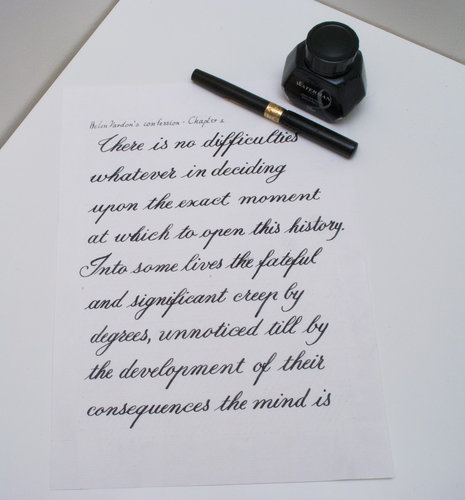 Helen Pardon's confession - Chapter 1
There is no difficulties
whatever in deciding
upon the exact moment
at which to open this history.
Into some lives the fateful
and significant creep by
degrees, unnoticed till by
the development of their
consequences the mind is
WATERMAN